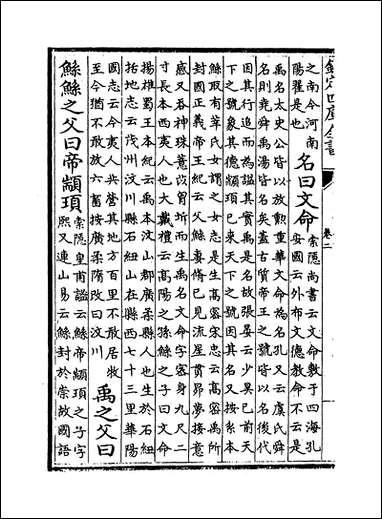 欽定四庫全書
卷二
之南今河南
陽翟是也
名曰文命
索隱尚書云文命敷于四海孔
安國云外布文德教命不云是
禹名太史公皆以放勲重華文命為名孔又云虞氏舜
名則堯舜禹湯皆名矣盖古質帝王之號皆以名後代
因其行追而為謚其實禹是名故張晏云少昊已前天
下之號象其德顓頊已來天下之號因其名又按系本
鯀取有莘氏女謂之女志是生髙宻宋忠云髙宻禹所
封國正義帝王紀云父鯀妻脩己見流星貫昴夢接意
感又吞神珠薏苡胷坼而生禹名文命字宻身九尺二
寸長本西夷人也大戴禮云髙陽之孫鯀之子曰文命
揚雄蜀王本紀云禹本汶山郡廣柔縣人也生於石紐
括地志云茂州汶川縣石紐山在縣西七十三里華陽
國志云今夷人共營其地方百里不敢居牧
至今猶不敢放六畜按廣柔隋改曰汶川
禹之父曰
鯀鯀之父曰帝顓頊
索隱皇甫謐云鯀帝顓頊之子字
熙又連山易云鯀封於崇故國語